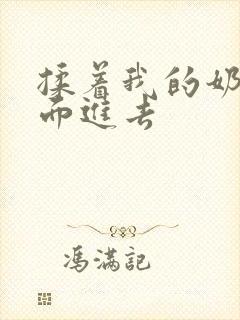 揉着我的奶
而進去
馮滿記